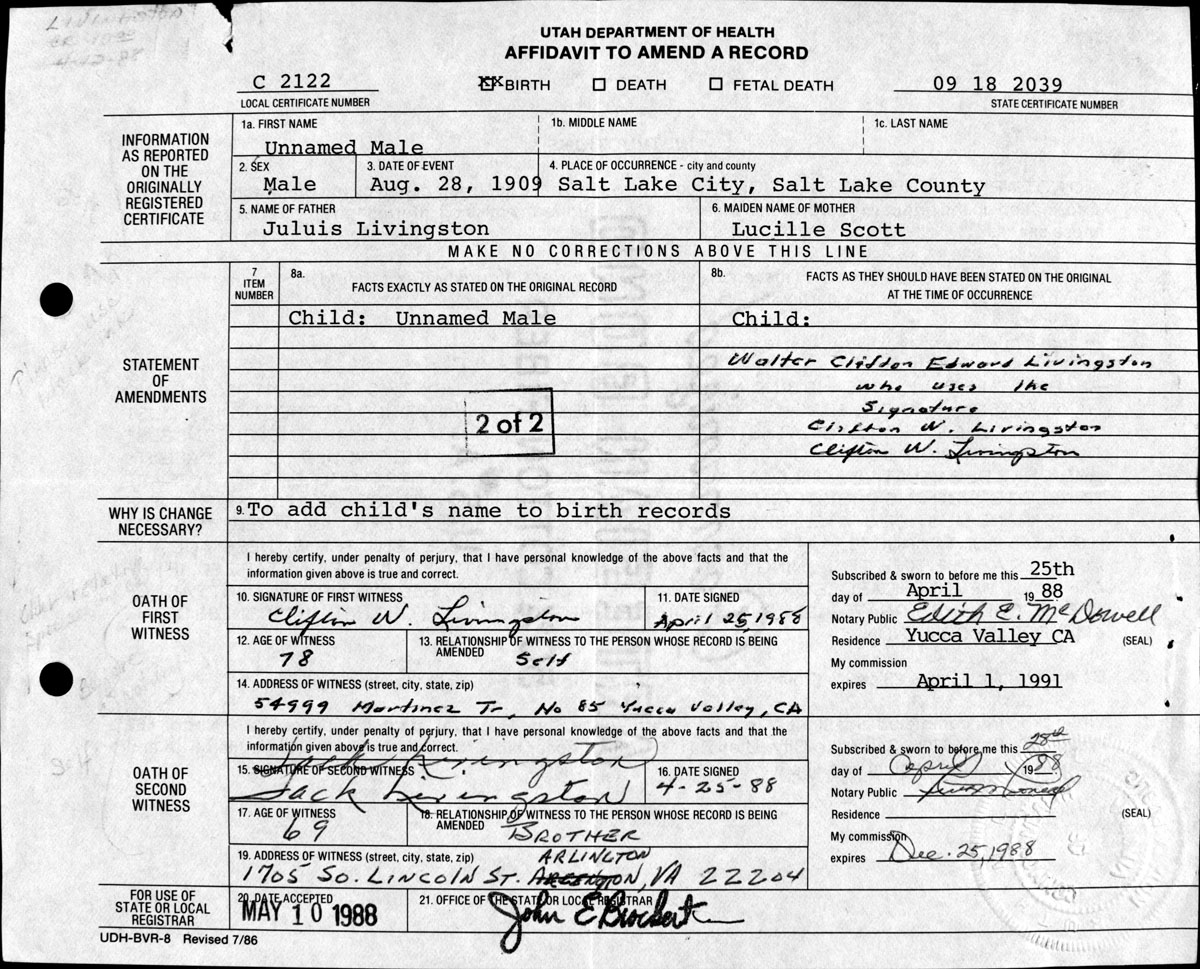 UTAH DEPARTMENT OF HEALTH
AFFIDAVIT TO AMEND A RECORD
C 2122
LOCAL CERTIFICATE NUMBER
XX BIRTH ☐ DEATH ☐ FETAL DEATH
09 18 2039
STATE CERTIFICATE NUMBER
INFORMATION
AS REPORTED
ON THE
ORIGINALLY
REGISTERED
CERTIFICATE
1a. FIRST NAME 1b. MIDDLE NAME 1c. LAST NAME
Unnamed Male
2. SEX 3. DATE OF EVENT 4. PLACE OF OCCURRENCE - city and county
Male Aug. 28, 1909 Salt Lake City, Salt Lake County
5. NAME OF FATHER 6. MAIDEN NAME OF MOTHER
Juluis Livingston Lucille Scott
MAKE NO CORRECTIONS ABOVE THIS LINE
STATEMENT
OF
AMENDMENTS
7
ITEM
NUMBER
8a.
FACTS EXACTLY AS STATED ON THE ORIGINAL RECORD
8b.
FACTS AS THEY SHOULD HAVE BEEN STATED ON THE ORIGINAL
AT THE TIME OF OCCURRENCE
Child: Unnamed Male
Child:
Walter Clifton Edward Livingston
who uses the
Signature
Clifton W. Livingston
Clifton W. Livingston
2 of 2
WHY IS CHANGE
NECESSARY?
9. To add child's name to birth records
OATH OF
FIRST
WITNESS
I hereby certify, under penalty of perjury, that I have personal knowledge of the above facts and that the
information given above is true and correct.
10. SIGNATURE OF FIRST WITNESS 11. DATE SIGNED
Clifton W. Livingston April 25, 1988
12. AGE OF WITNESS 13. RELATIONSHIP OF WITNESS TO THE PERSON WHOSE RECORD IS BEING
AMENDED
78 Self
14. ADDRESS OF WITNESS (street, city, state, zip)
54999 Martinez Tr, No 85 Yucca Valley, CA
Subscribed & sworn to before me this 25th
day of April 19 88
Notary Public Edith E. McDowell
Residence Yucca Valley CA (SEAL)
My commission
expires April 1, 1991
OATH OF
SECOND
WITNESS
I hereby certify, under penalty of perjury, that I have personal knowledge of the above facts and that the
information given above is true and correct.
Jack Livingston
15. SIGNATURE OF SECOND WITNESS 16. DATE SIGNED
Jack Livingston 4-25-88
17. AGE OF WITNESS 18. RELATIONSHIP OF WITNESS TO THE PERSON WHOSE RECORD IS BEING
AMENDED
69 BROTHER
19. ADDRESS OF WITNESS (street, city, state, zip) ARLINGTON
1705 SO. LINCOLN ST. VA 22204
Subscribed & sworn to before me this 28th
day of April 1988
Notary Public
Residence (SEAL)
My commission
expires Dec. 25, 1988
FOR USE OF
STATE OR LOCAL
REGISTRAR
20. DATE ACCEPTED 21. OFFICE OF THE STATE OR LOCAL REGISTRAR
MAY 10 1988 John E Brockert
UDH-BVR-8 Revised 7/86